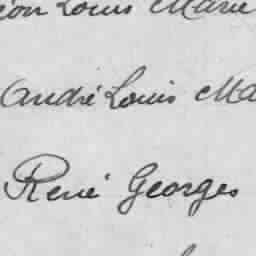 Louis Marie
André Louis Ma
René Georges